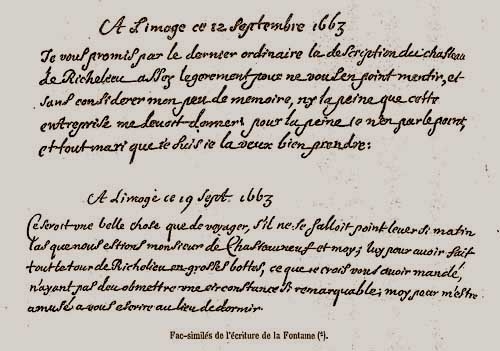 A Limoge ce 12 Septembre 1663
Je vous promis par le dernier ordinaire la description du chasteau
de Richelieu assez legerement pour ne vous en point mentir, et
sans considerer mon peu de memoire, ny la peine que cette
entreprise me devoit donner: pour la peine je n'en parle point,
et tout mari que je suis je la veux bien prendre:
A Limoge ce 19 Sept. 1663
Ce seroit une belle chose que de voyager, s'il ne se falloit point lever si matin
las que nous estions monsieur de Chasteauneuf et moy; luy pour avoir fait
tout le tour de Richelieu en grosses bottes, ce que je crois vous avoir mandé,
n'ayant pas deu obmettre une circonstance si remarquable; moy pour m'estre
amusé a vous escrire au lieu de dormir.
Fac-similés de l'écriture de la Fontaine (2).